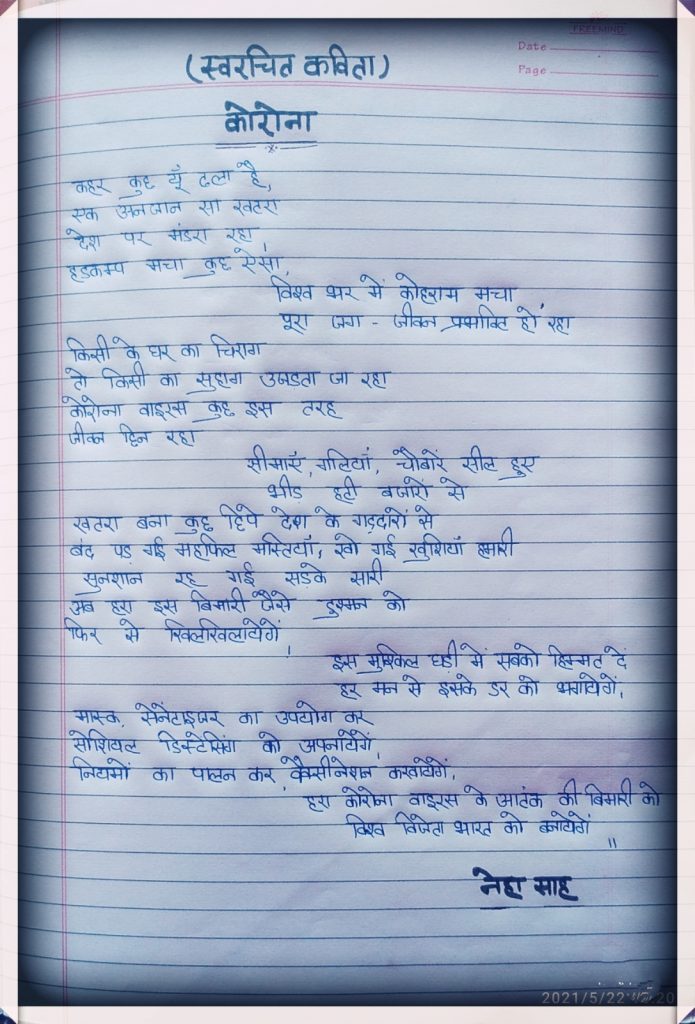 FREEMIND
Date
Page
(स्वरचित कविता)
कोरोना
कहर कुछ यूँ ढला है,
एक अनजान सा खतरा
देश पर मंडरा रहा
हडकम्प मचा कुछ ऐसा,
विश्व भर में कोहराम मचा,
पूरा जग - जीवन प्रभावित हो रहा
किसी के घर का चिराग
तो किसी का सुहाग उजडता जा रहा
कोरोना वाइरस कुछ इस तरह
जीवन छिन रहा
सीमाएँ, गलियाँ, चौबारें सील हुए
भीड हटी बजारों से
खतरा बना कुछ छिपे देश के गद्दारों से
बंद पड गई महफिल मस्तियाँ, खो गई खुशियाँ हमारी
सुनशान रह गई सडके सारी
अब हरा इस बिमारी जैसे दुश्मन को
फिर से खिलखिलायेगें,
इस मुश्किल घडी में सबको हिम्मत दें
हर मन से इसके डर को भगायेगें,
मास्क, सेनेंटाइजर का उपयोग कर
सोशियल डिस्टेसिंग को अपनायेगें,
नियमों का पालन कर, वैक्सीनेशन करवायेगें,
हरा कोरोना वाइरस के आतंक की बिमारी को
विश्व विजेता भारत को बनायेगें ॥
नेहा साह
2021/5/22